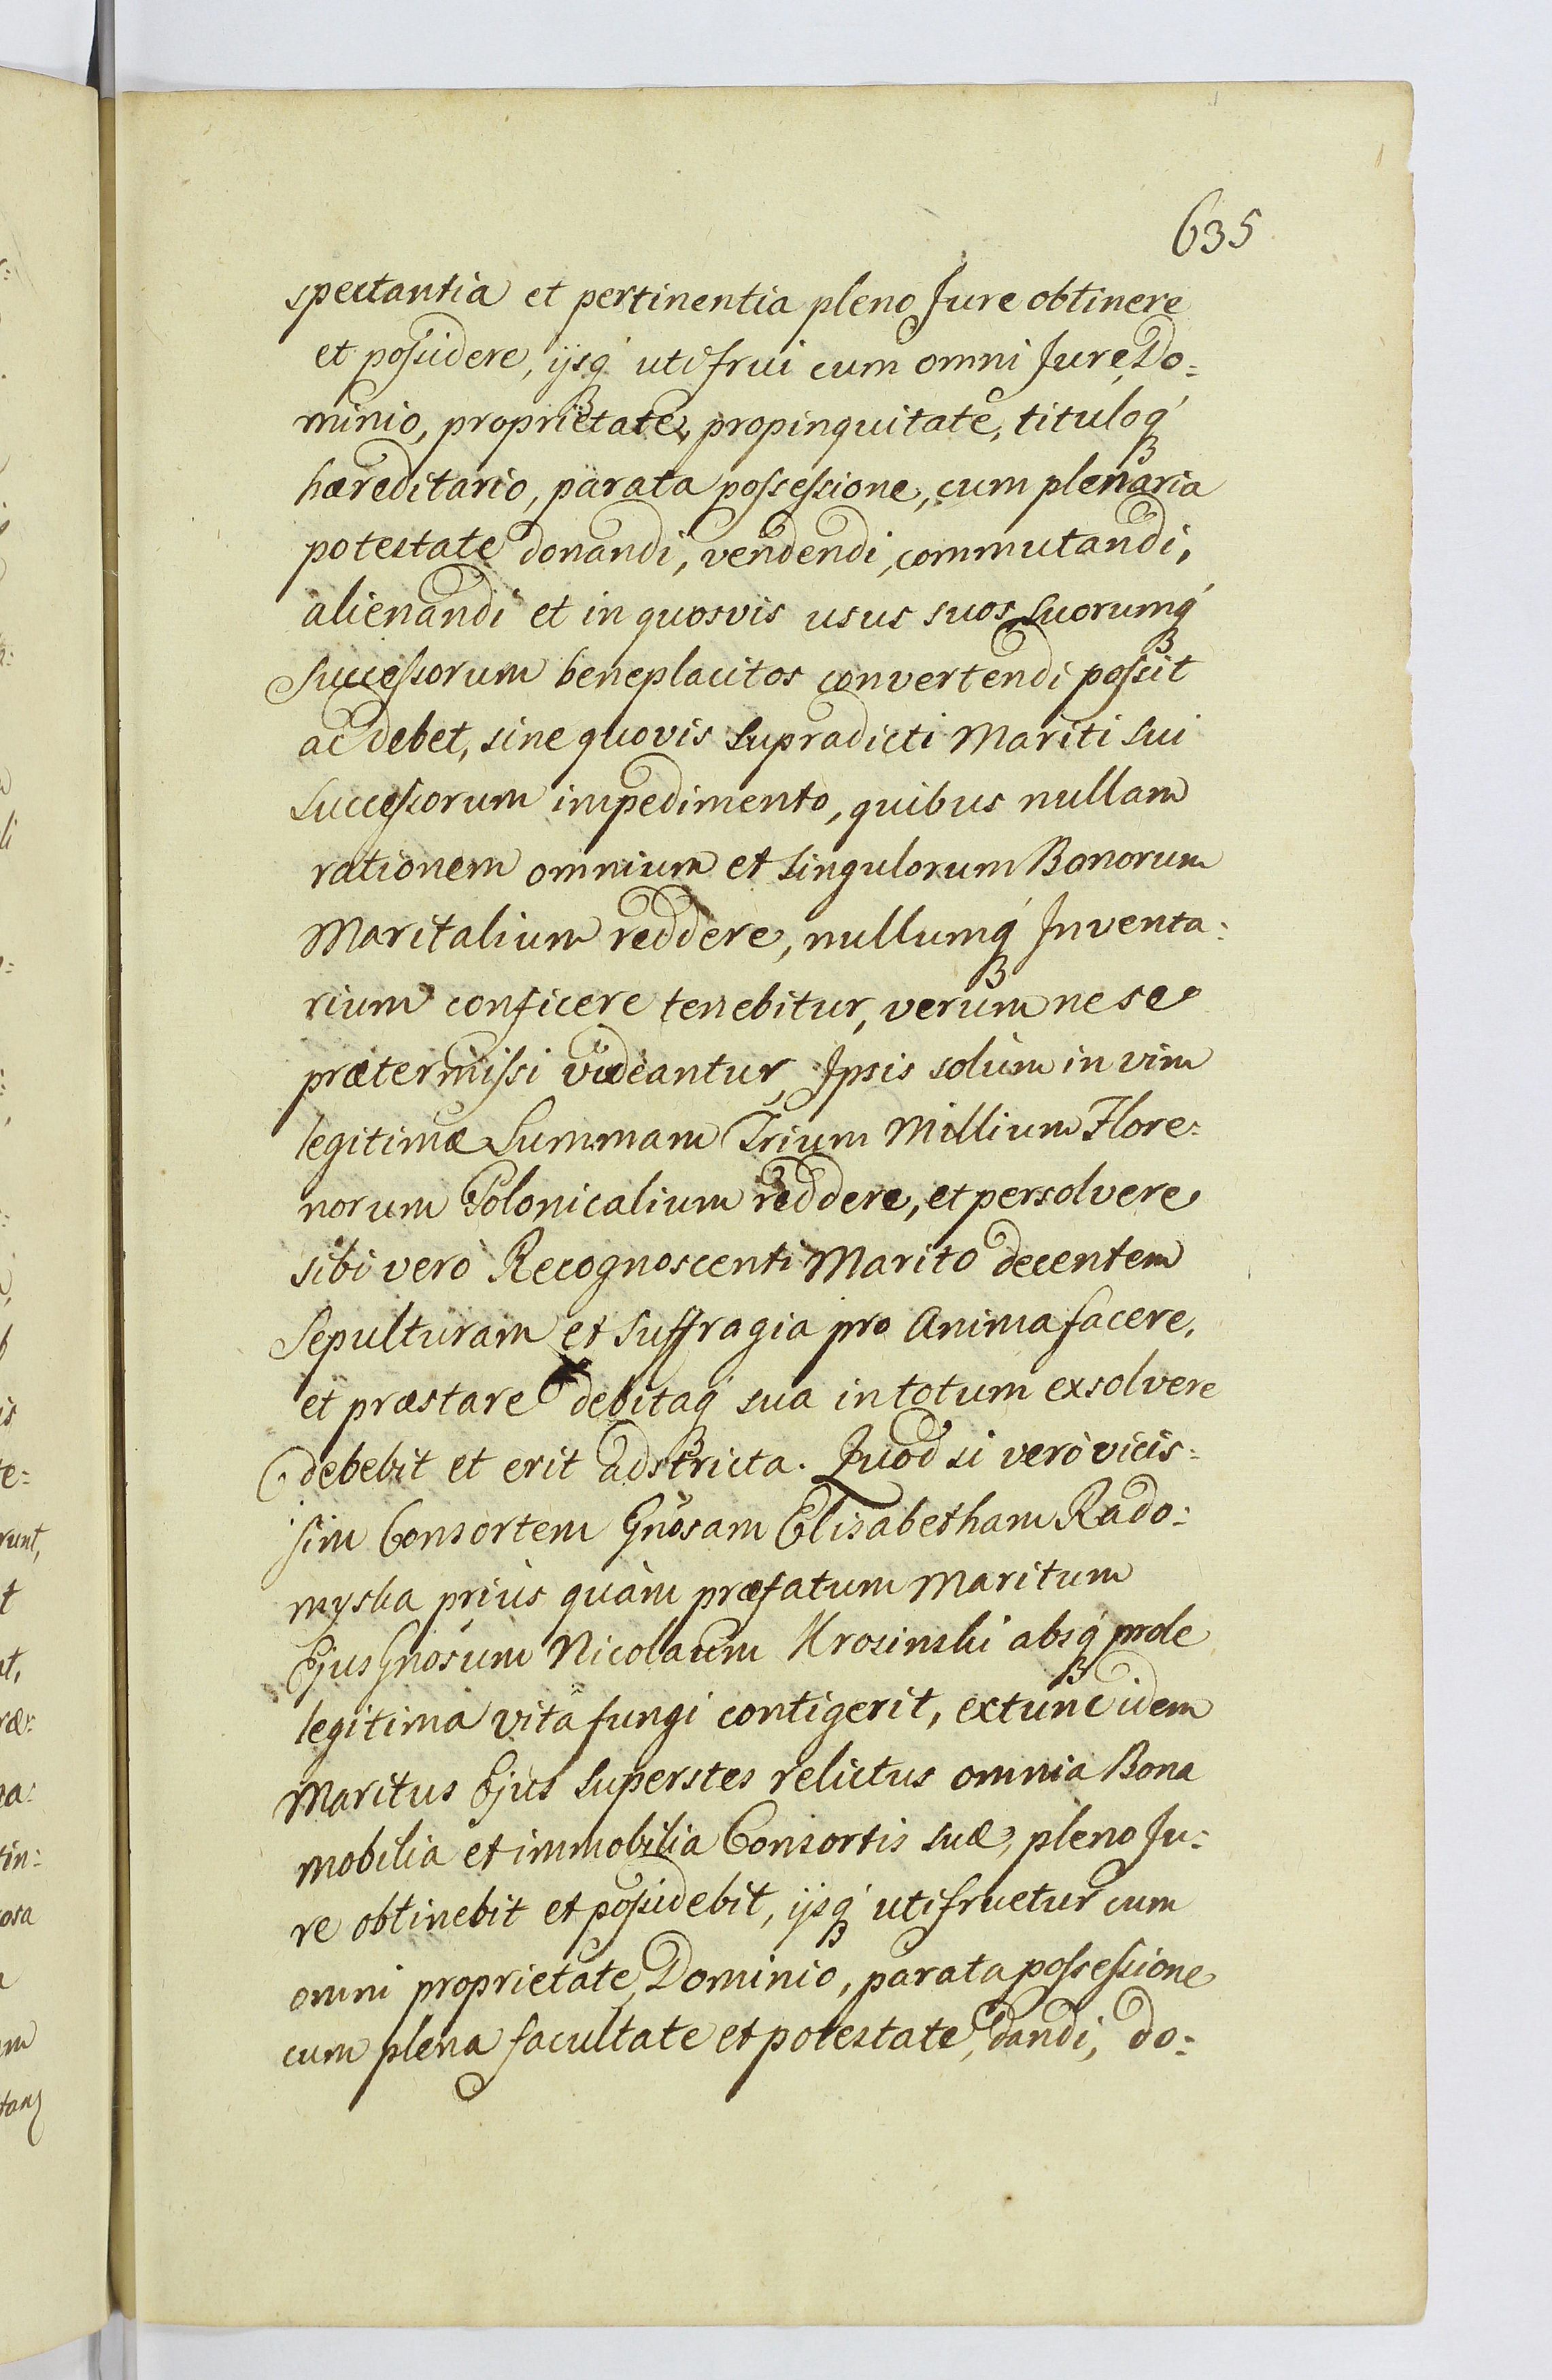 635
spectantia et pertinentia pleno Jure obtinere
et possidere, ijsq́ utifrui cum omni Jure, Do=
minio, proprietate, propinquitate, tituloq́
hæreditario, parata possessione, cum plenaria
potestate donandi, vendendi, commutandi,
alienandi et in quosvis usus suos suorumq́
Successorum beneplacitos convertendi possit
ac debet, sine quovis supradicti Mariti sui
successorum impedimento, quibus nullam
rationem omnium et singulorum Bonorum
Maritalium reddere, nullumq́ Inventa=
rium conficere tenebitur, verùm ne se
prætermissi videantur, Ipsis solùm in vim
legitimæ Summam Trium Millium Flore=
norum Polonicalium reddere, et persolvere
sibi verò Recognoscenti Marito decentem
Sepulturam et suffragia pro Anima facere,
et præstare debitaq́ sua in totum exsolvere
debebit et erit adstricta. Quod si verò vicis=
sim Consortem Gnosam Elisabetham Rado=
myska priùs quàm præfatum Maritum
Ejus Gnosum Nicolaum Krosinski absq́ prole
legitima vitâ fungi contigerit, extunc idem
Maritus Ejus superstes relictus omnia Bona
mobilia et immobilia Consortis suæ, pleno Ju=
re obtinebit et possidebit, ijsq́ utifruetur cum
omni proprietate, Dominio, parata possessione
cum plena facultate et potestate, dandi, do=